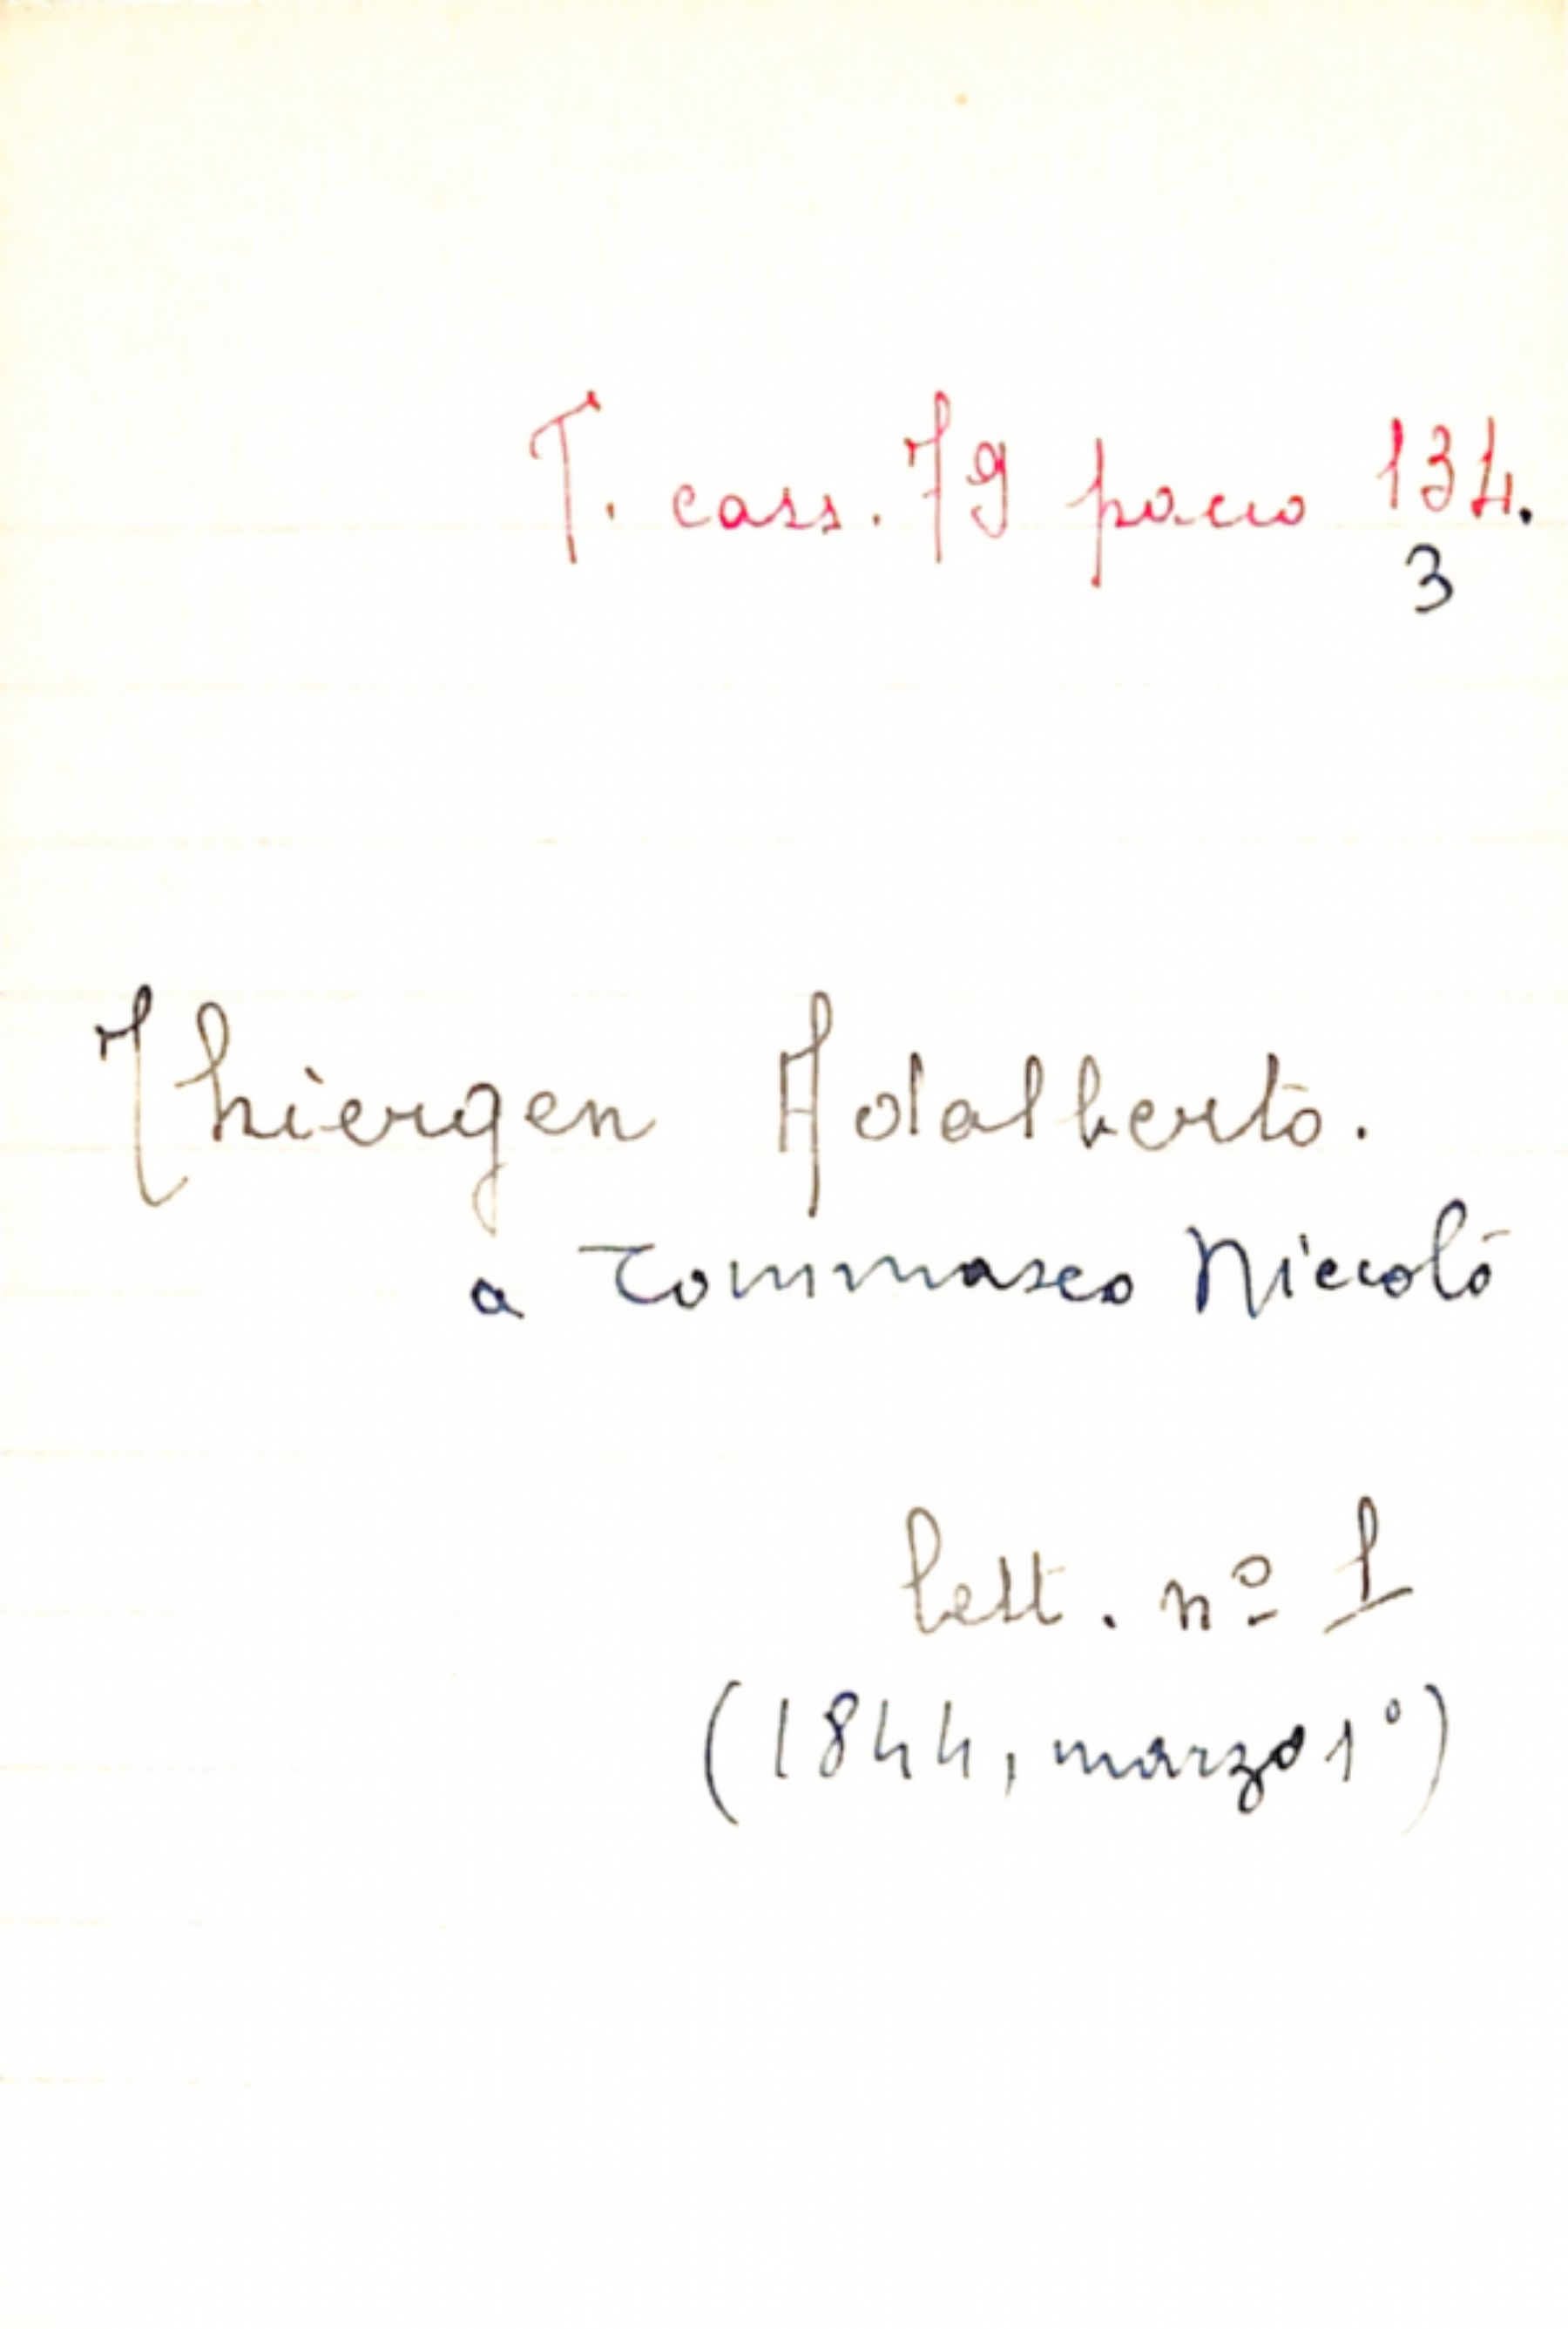 T. cass. 79 pacco 134.
3
Thiergen Adalberto.
a Tommaseo Niccolò
lett. nº 1
(1844, marzo 1°)